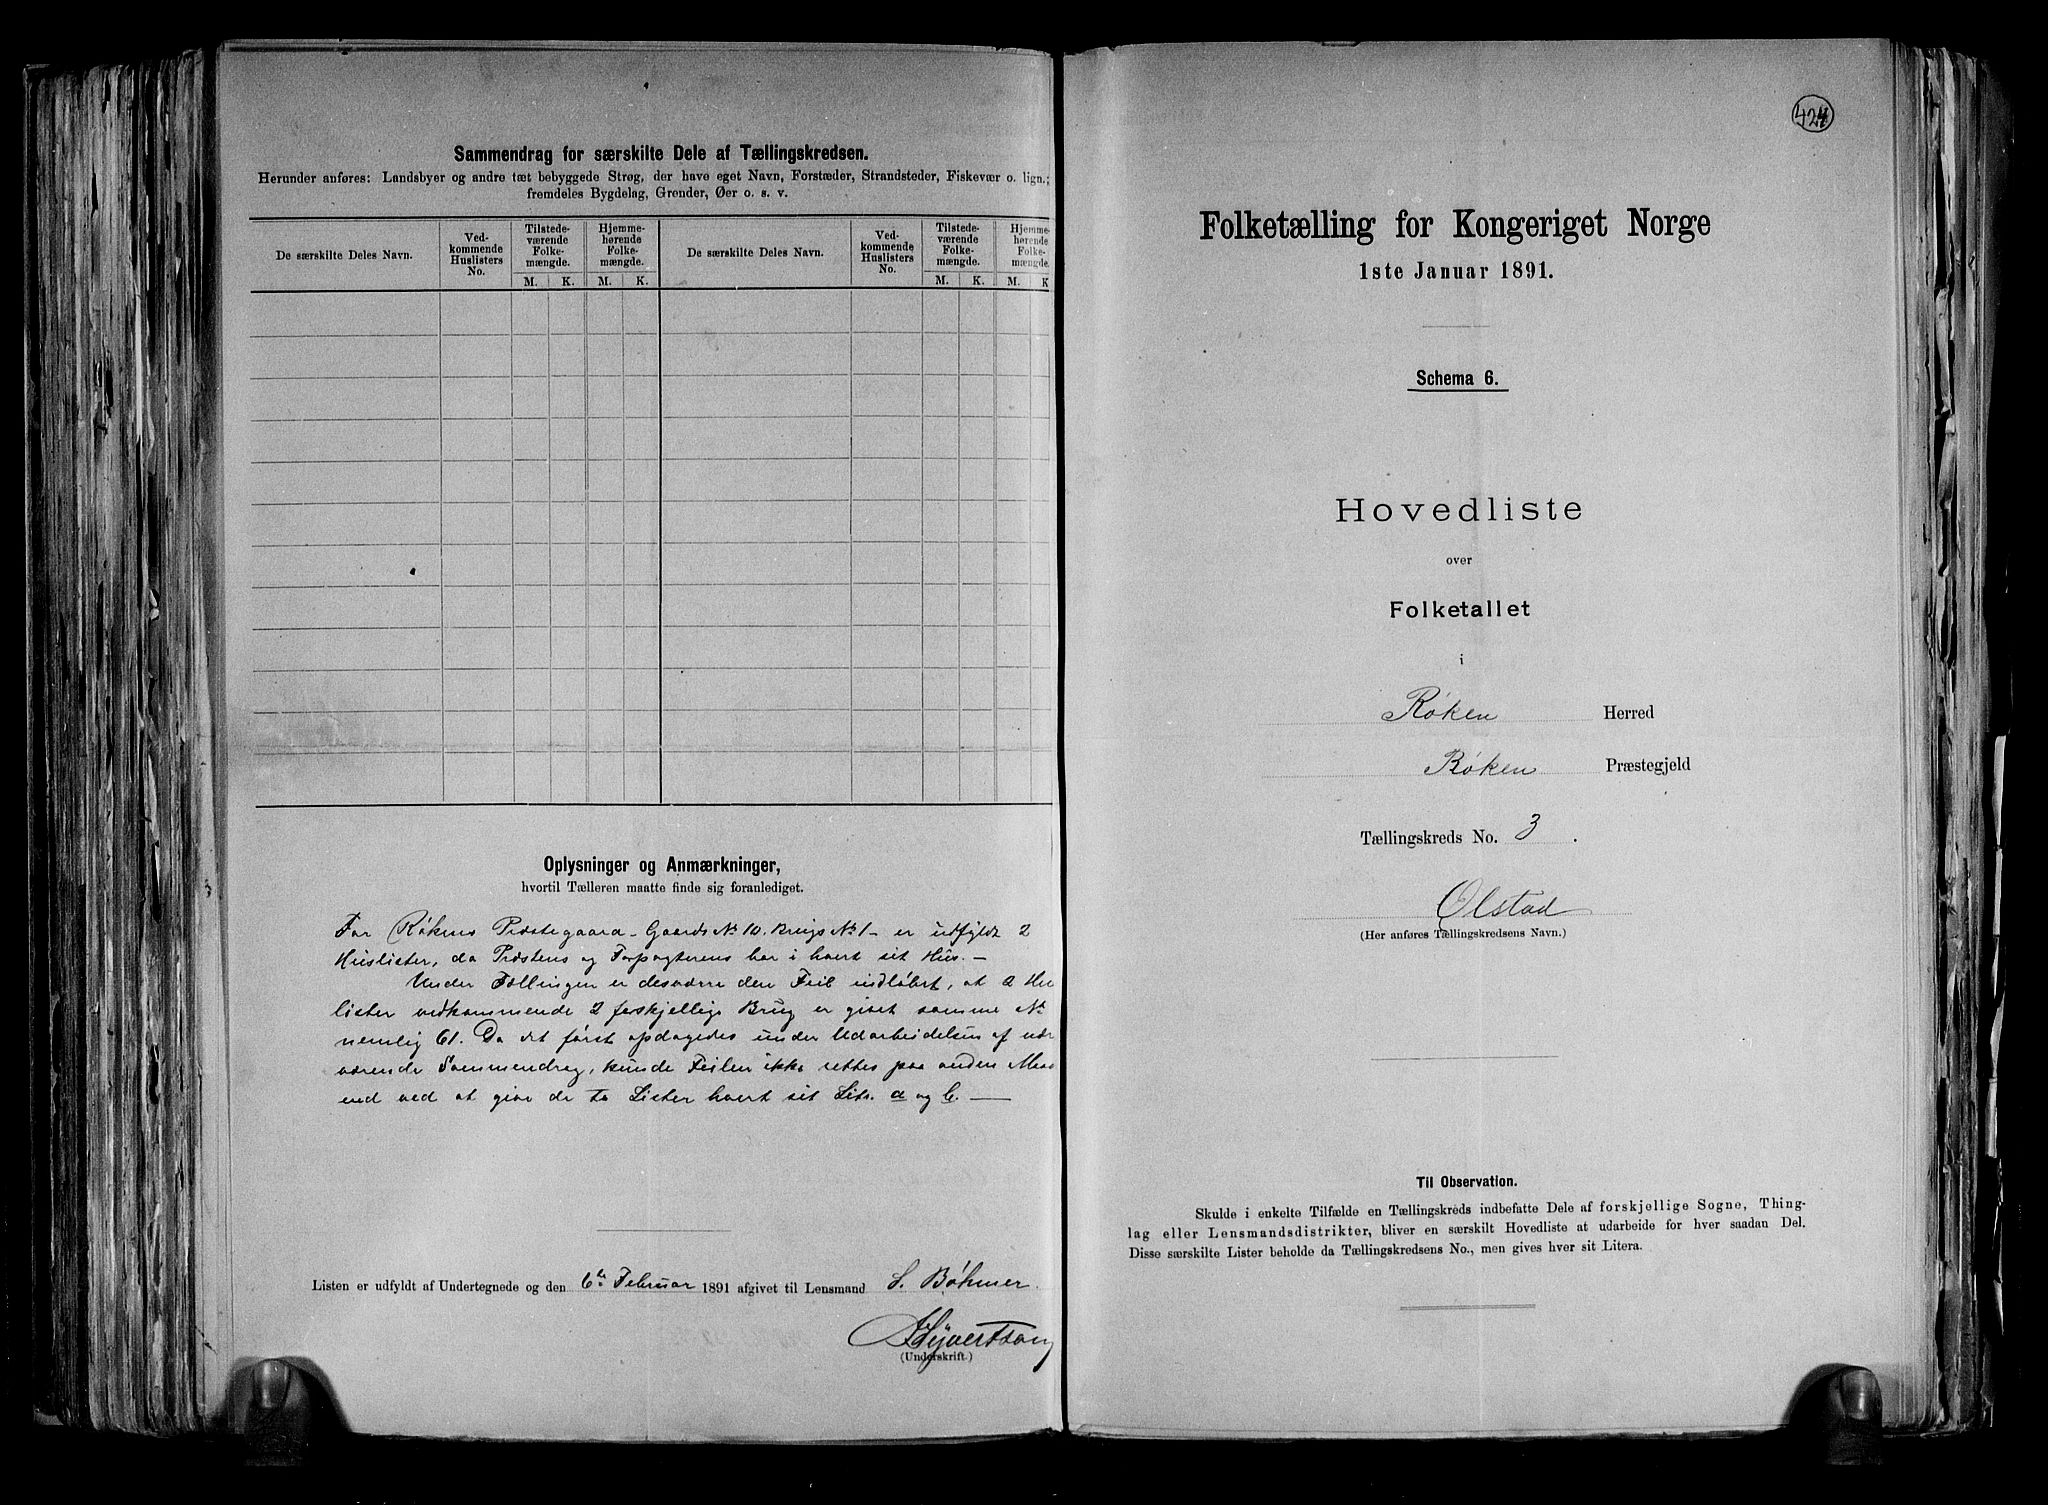 Sammendrag for særskilte Dele af Tællingskredsen.
Herunder anføres: Landsbyer og andre tæt bebyggede Strøg, der have eget Navn, Forstæder, Strandsteder, Fiskevær o. lign.;
fremdeles Bygdelag, Grender, Øer o. s. v.
De særskilte Deles Navn. Ved-kommende Huslisters No. Tilstede-værende Folke-mængde. Hjemme-hørende Folke-mængde. De særskilte Deles Navn. Ved-kommende Huslisters No. Tilstede-værende Folke-mængde. Hjemme-hørende Folke-mængde.
M. K. M. K. M. K. M. K
Oplysninger og Anmærkninger,
hvortil Tælleren maatte finde sig foranlediget.
For Røkens Præstegaard - Gaards No 10. Brugs No 1 - er udfyldt 2
Huslister, da Præstens og Forpagterens bor i hvert sit Hus. -
Under Tællingen er desværre den Feil indløbet, at 2 Hu
lister vedkommende 2 forskjellige Brug er givet samme No
nemlig 61. Da det først opdagedes under Udarbeidelsen af nær
værende Sammendrag, kunde Feilen ikke rettes paa anden Maa
end ved at give de to Lister hvert sit Litr. a og b. -
Listen er udfyldt af Undertegnede og den 6te Februar 1891 afgivet til Lensmand S. Bøhmer
(Underskrift.)
424
Folketælling for Kongeriget Norge
1ste Januar 1891.
Schema 6.
Hovedliste
over
Folketallet
i
Røken Herred
Røken Præstegjeld
Tællingskreds No. 3.
Ølstad
(Her anføres Tællingskredsens Navn.)
Til Observation.
Skulde i enkelte Tilfælde en Tællingskreds indbefatte Dele af forskjellige Sogne, Thing-
lag eller Lensmandsdistrikter, bliver en særskilt Hovedliste at udarbeide for hver saadan Del.
Disse særskilte Lister beholde da Tællingskredsens No., men gives hver sit Litera.